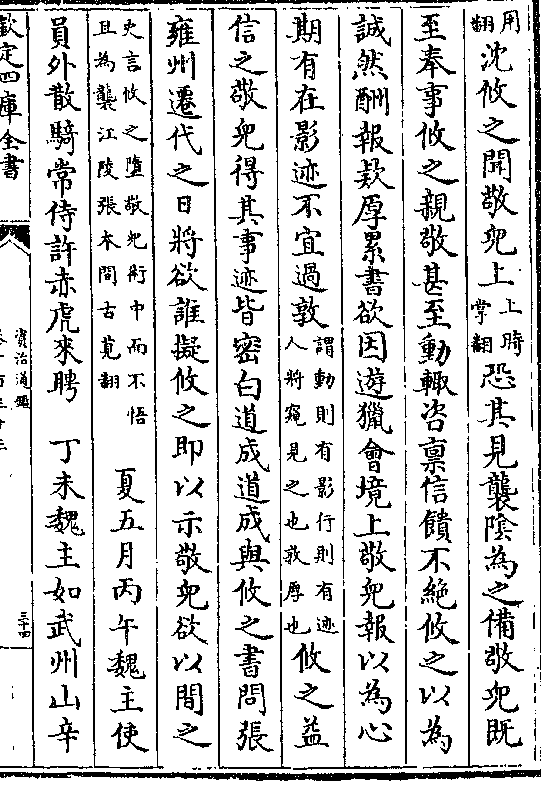 用翻沈攸之聞敬兒上上時掌翻恐其見襲陰為之備敬兒既
至奉事攸之親敬甚至動輒咨稟信饋不絶攸之以為
誠然酬報欵厚累書欲因遊獵會境上敬兒報以為心
期有在影迹不宜過敦謂動則有影行則有迹人將窺見之也敦厚也攸之益
信之敬兒得其事迹皆密白道成道成與攸之書問張
雍州遷代之日將欲誰擬攸之即以示敬兒欲以間之
史言攸之墮敬兒術中而不悟且為襲江陵張本間古莧翻 夏五月丙午魏主使
員外散騎常侍許赤虎來聘 丁未魏主如武州山辛
欽定四庫全書 資治通鑑 三十四